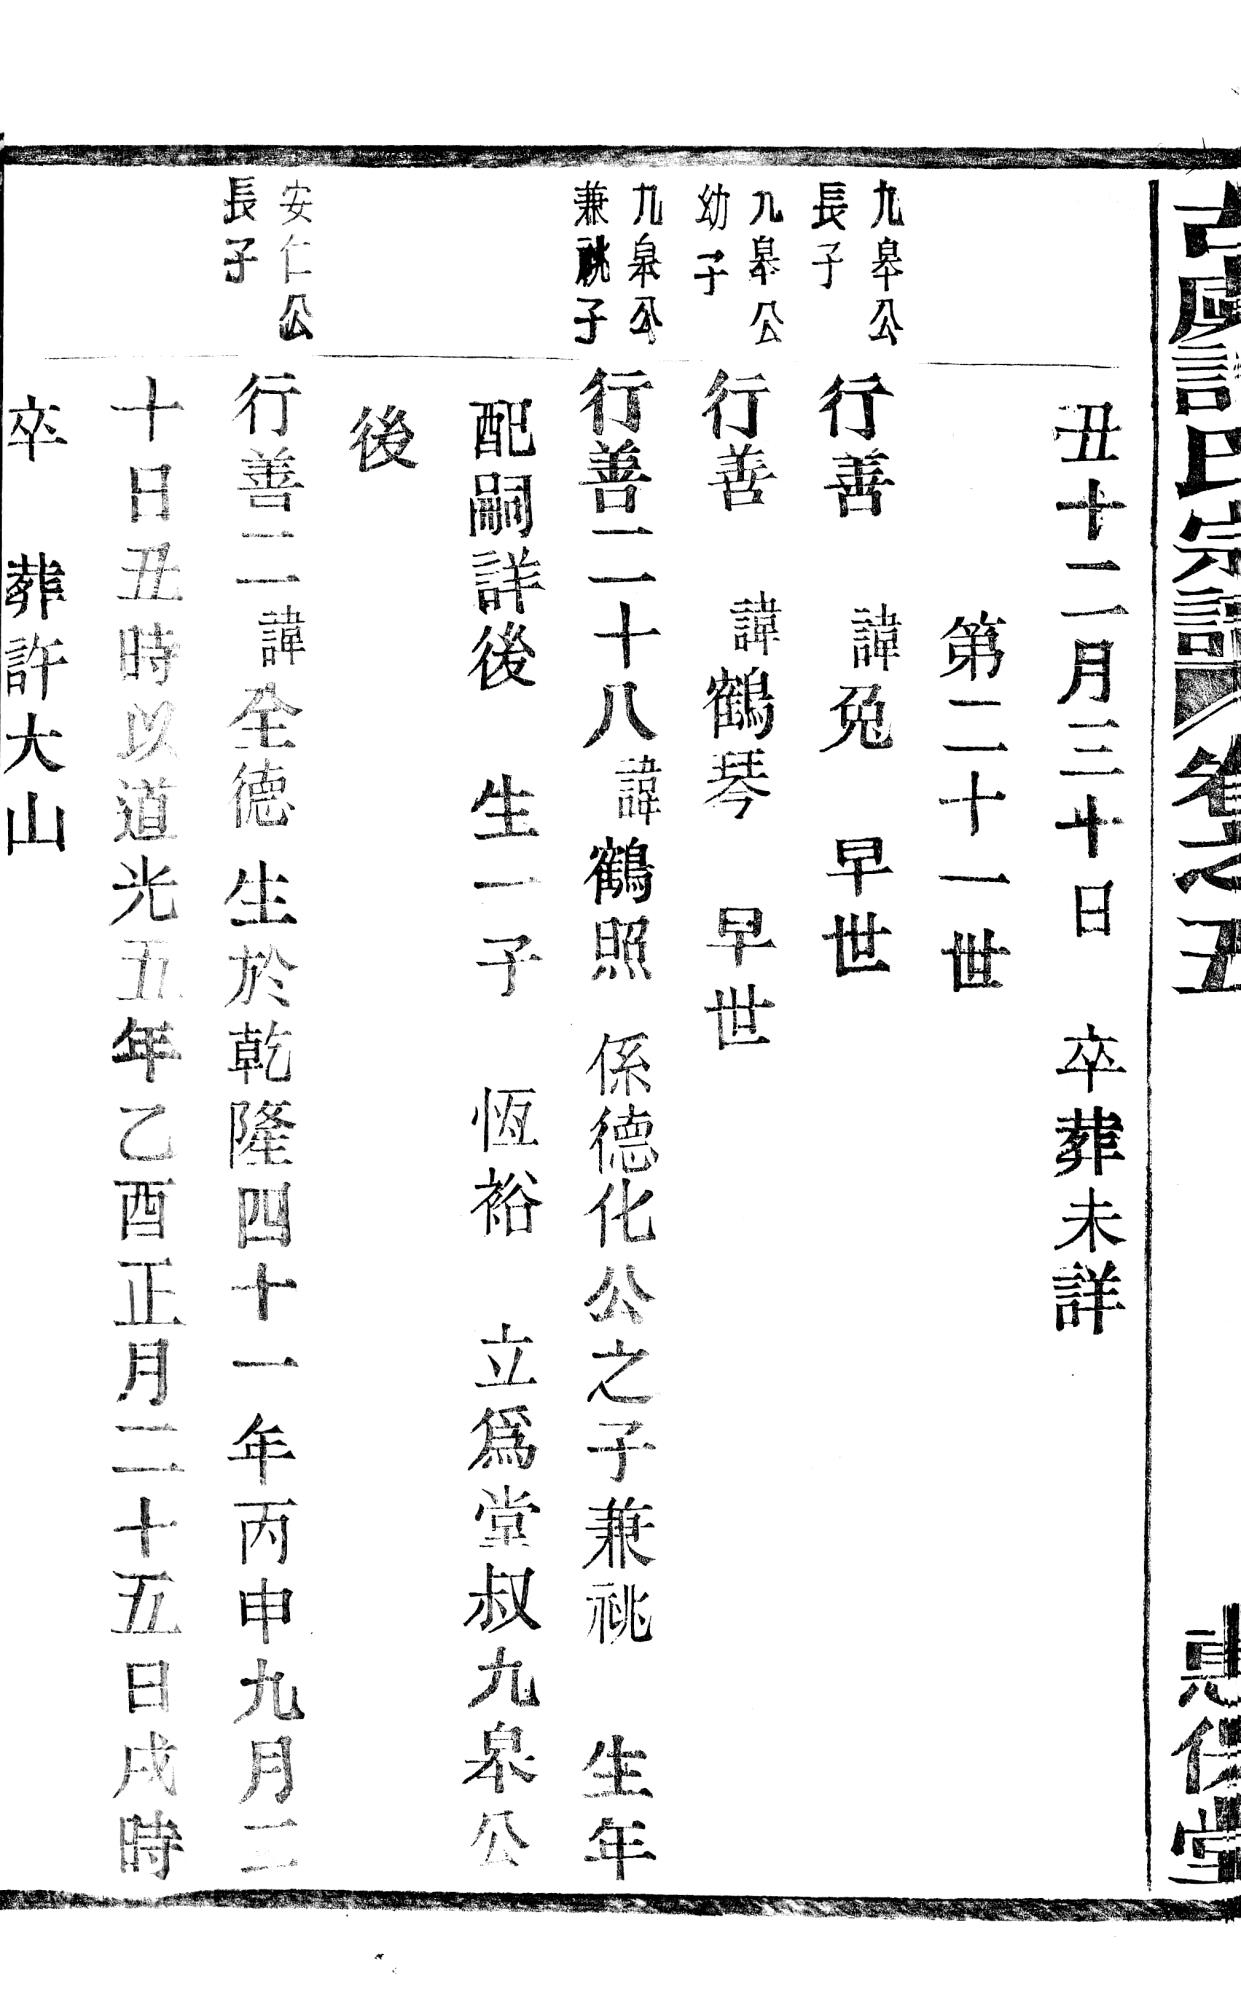 古虞氏宗譜 卷之五 堂
丑十二月三十日 卒葬未詳
第二十一世
九皋公
長子
行善 諱兔 早世
九皋公
幼子
行善 諱鶴琴 早世
九皋公
兼祧子
行善二十八諱鶴照 係德化公之子兼祧 生年
配嗣詳後 生一子 恆裕 立爲堂叔九皋公
後
安仁公
長子
行善二諱全德 生於乾隆四十一年丙申九月二
十日丑時以道光五年乙酉正月二十五日戌時
卒 葬許大山